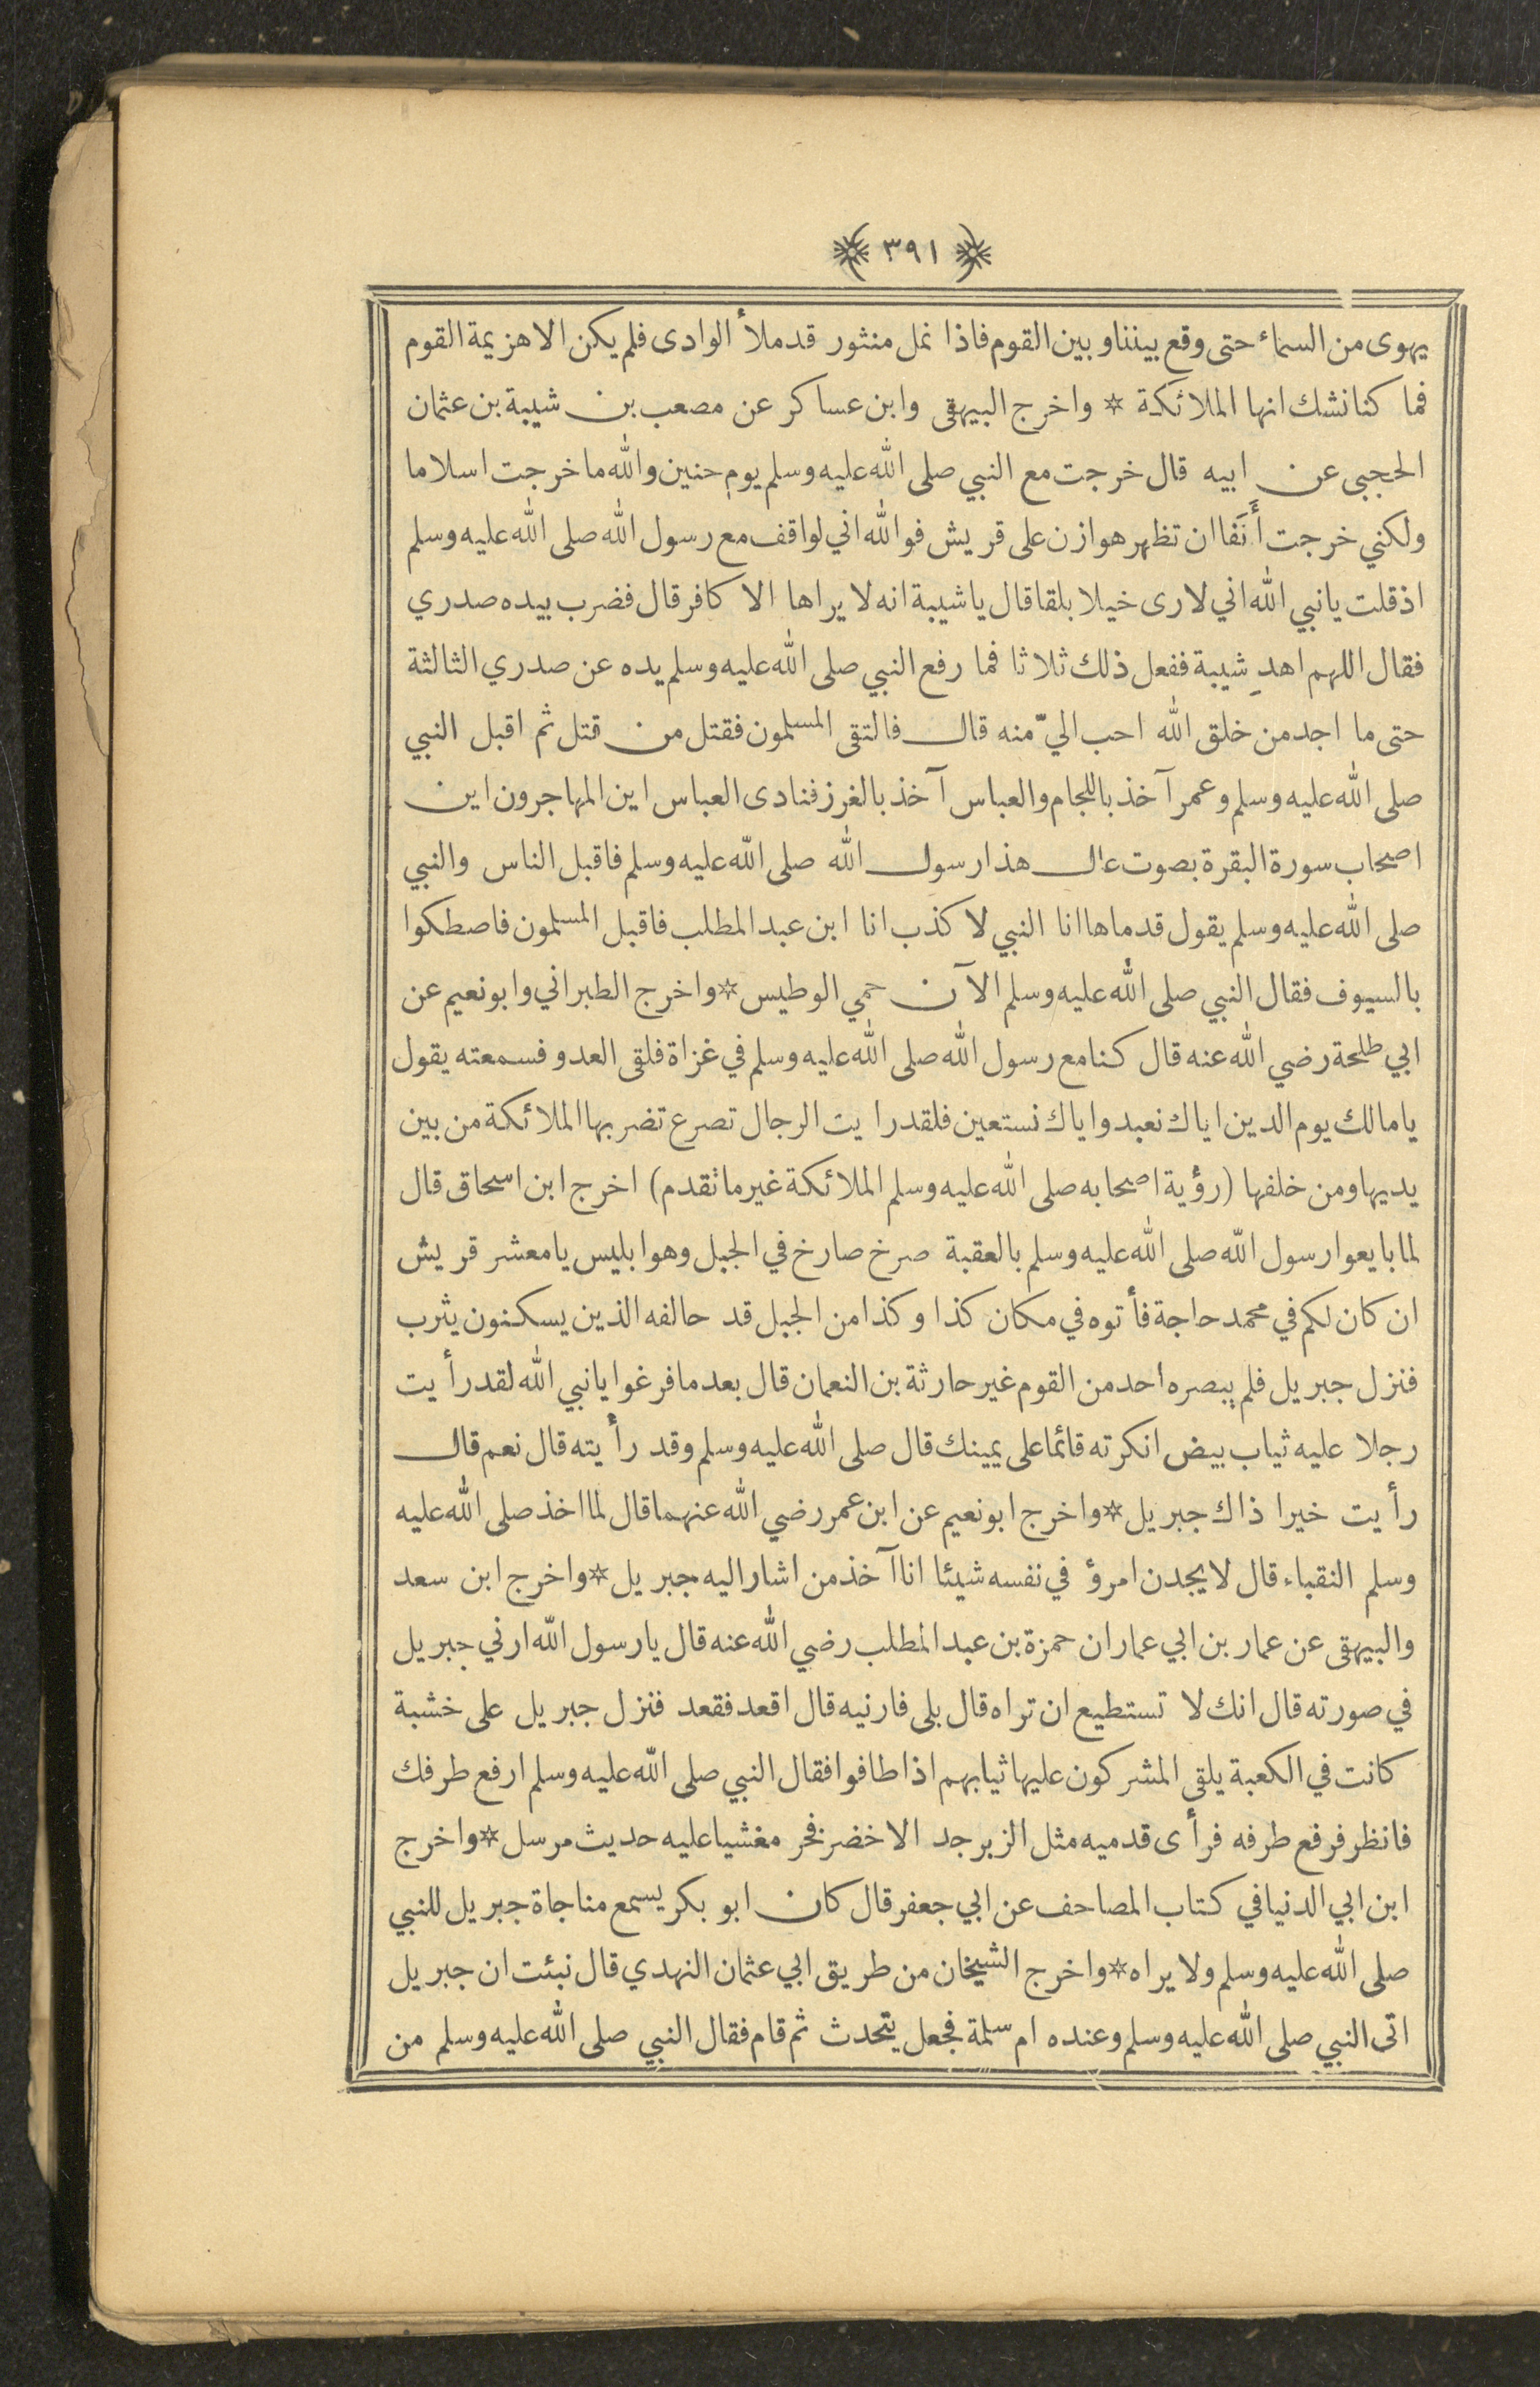 ﴿ ٣٩١ ﴾
يهوى من السماء حتى وقع بيننا وبين القوم فاذا نمل منثور قد ملأ الوادى فلم يكن الا هزيمة القوم
فما كنا نشك انها الملائكة * واخرج البيهقى وابن عساكر عن مصعب بن شيبة بن عثمان
الحجبى عن ابيه قال خرجت مع النبي صلى الله عليه وسلم يوم حنين والله ما خرجت اسلاما
ولكني خرجت أَنَفا ان تظهر هوازن على قريش فوالله اني لواقف مع رسول الله صلى الله عليه وسلم
اذ قلت يا نبي الله اني لارى خيلا بلقا قال يا شيبة انه لا يراها الا كافر قال فضرب بيده صدري
فقال اللهم اهدِ شيبة ففعل ذلك ثلاثا فما رفع النبي صلى الله عليه وسلم يده عن صدري الثالثة
حتى ما اجد من خلق الله احب اليّ منه قال فالتقى المسلمون فقتل من قتل ثم اقبل النبي
صلى الله عليه وسلم وعمر آخذ باللجام والعباس آخذ بالغرز فنادى العباس اين المهاجرون اين
اصحاب سورة البقرة بصوت عال هذا رسول الله صلى الله عليه وسلم فاقبل الناس والنبي
صلى الله عليه وسلم يقول قدماها انا النبي لا كذب انا ابن عبد المطلب فاقبل المسلمون فاصطكوا
بالسيوف فقال النبي صلى الله عليه وسلم الآن حمي الوطيس * واخرج الطبراني وابو نعيم عن
ابي طلحة رضي الله عنه قال كنا مع رسول الله صلى الله عليه وسلم في غزاة فلقى العدو فسمعته يقول
يا مالك يوم الدين اياك نعبد واياك نستعين فلقد رايت الرجال تصرع تضربها الملائكة من بين
يديها ومن خلفها (رؤية اصحابه صلى الله عليه وسلم الملائكة غير ما تقدم) اخرج ابن اسحاق قال
لما بايعوا رسول الله صلى الله عليه وسلم بالعقبة صرخ صارخ في الجبل وهو ابليس يا معشر قريش
ان كان لكم في محمد حاجة فأتوه في مكان كذا وكذا من الجبل قد حالفه الذين يسكنون يثرب
فنزل جبريل فلم يبصره احد من القوم غير حارثة بن النعمان قال بعد ما فرغوا يا نبي الله لقد رأيت
رجلا عليه ثياب بيض انكرته قائما على يمينك قال صلى الله عليه وسلم وقد رأيته قال نعم قال
رأيت خيرا ذاك جبريل * واخرج ابو نعيم عن ابن عمر رضي الله عنهما قال لما اخذ صلى الله عليه
وسلم النقباء قال لا يجدن امرؤ في نفسه شيئا انا آخذ من اشار اليه جبريل * واخرج ابن سعد
والبيهقى عن عمار بن ابي عمار ان حمزة بن عبد المطلب رضي الله عنه قال يا رسول الله ارني جبريل
في صورته قال انك لا تستطيع ان تراه قال بلى فارنيه قال اقعد فقعد فنزل جبريل على خشبة
كانت في الكعبة يلقى المشركون عليها ثيابهم اذا طافوا فقال النبي صلى الله عليه وسلم ارفع طرفك
فانظر فرفع طرفه فرأى قدميه مثل الزبرجد الاخضر فخر مغشيا عليه حديث مرسل * واخرج
ابن ابي الدنيا في كتاب المصاحف عن ابي جعفر قال كان ابو بكر يسمع مناجاة جبريل للنبي
صلى الله عليه وسلم ولا يراه * واخرج الشيخان من طريق ابي عثمان النهدي قال نبئت ان جبريل
اتى النبي صلى الله عليه وسلم وعنده ام سلمة فجعل يتحدث ثم قام فقال النبي صلى الله عليه وسلم من